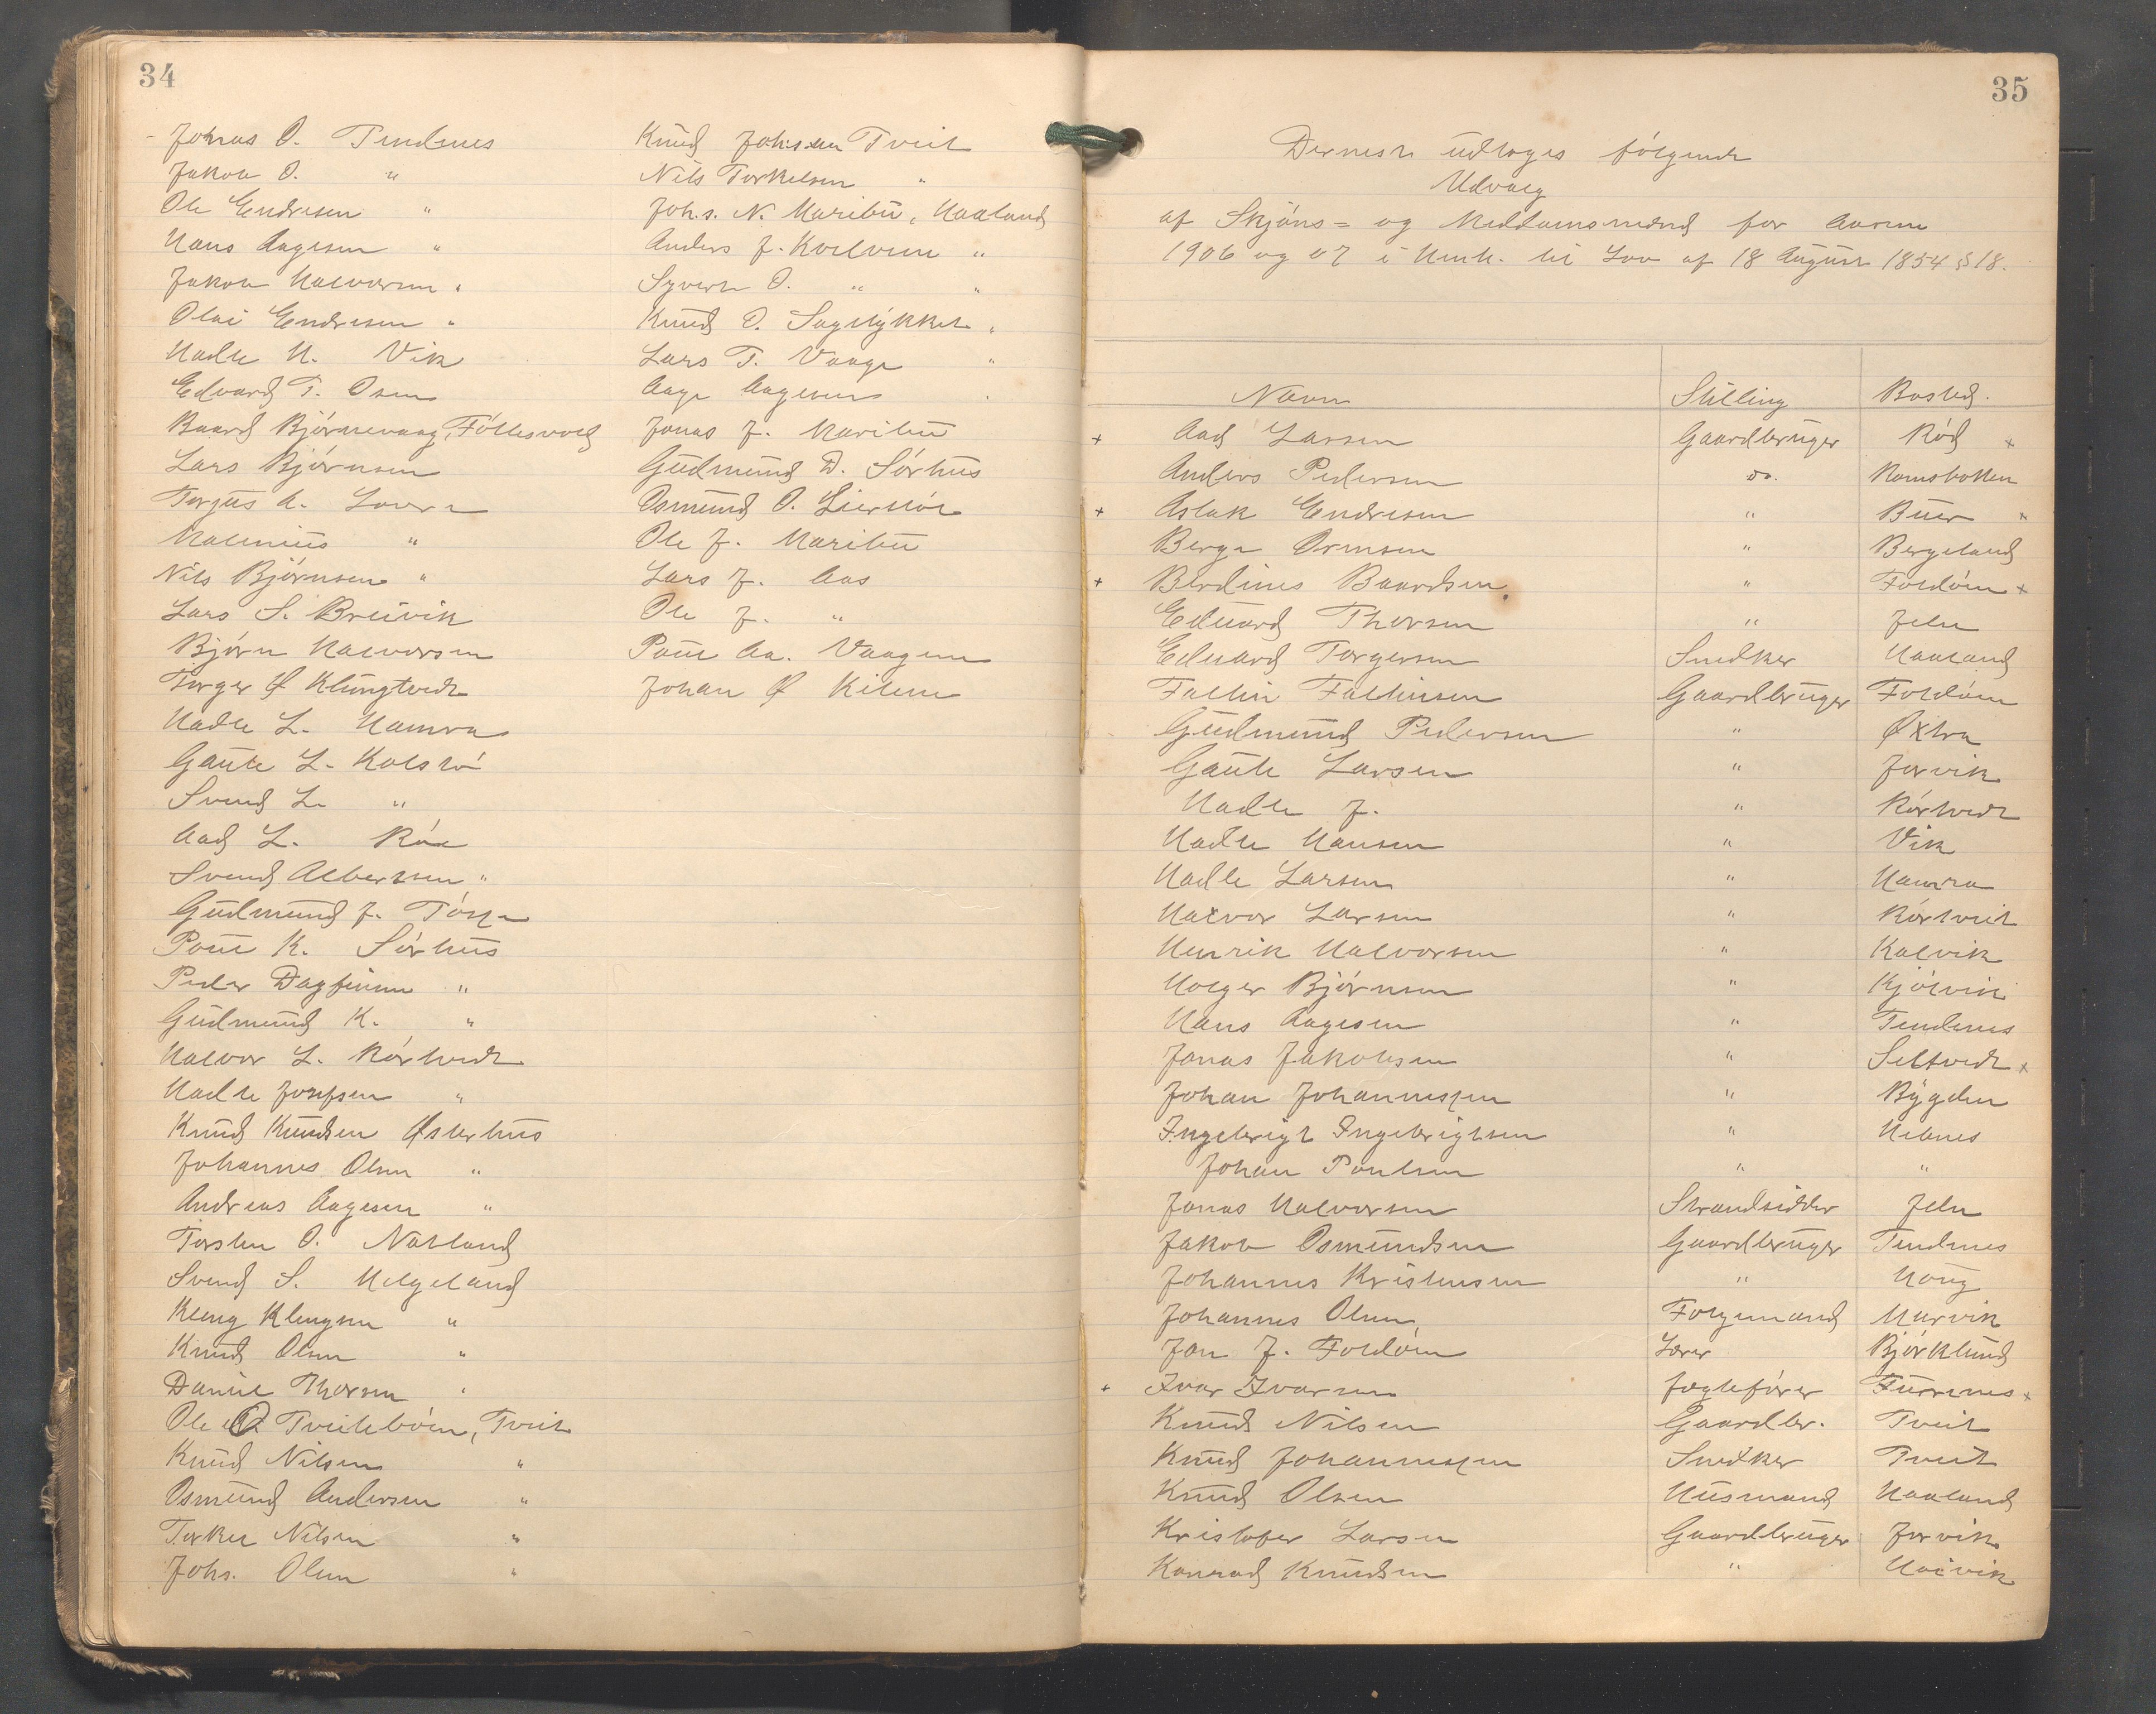 34
Jonas O. Tendenes
Jakob O. "
Ole Endresen "
Hans Aagesen "
Jakob Halvorsen "
Olai Endresen "
Hadle H. Vik
Edvard T. Osen
Baard Bjørnevaag,Føllesvold
Lars Bjørnsen
Torgus A. Lovra
Malenius "
Nils Bjørnsen "
Lars S. Breivik
Bjørn Halvorsen
Torger Ø Klungtvedt
Hadle L. Hamra
Gaute L. Kolstø
Svend L. "
Aad L. Röe
Svend Albertsen "
Gudmund J. Tøsse
Poul K. Sørhus
Peder Dagfinsen "
Gudmund K. "
Halvor L. Rørtvedt
Hadle Josefsen "
Knud Knudsen Østerhus
Johannes Olsen "
Andreas Aagesen "
Torsten O. Natland
Svend S. Helgeland
Kleng Klengsen "
Knud Olsen "
Daniel Thorsen "
Ole O. Tveitebøen, Tveit
Knud Nilsen "
Osmund Andersen "
Torkel Nilsen "
Johs. Olsen "
Knud Johnsen Tveit
Nils Torkelsen "
Johs. N. Maribu, Haaland
Anders J. Kvelvene "
Syvert O. " "
Knud O. Sagstykket "
Lars T. Vaage "
Aage Aagesen "
Jonas J. Maribu
Gudmund D. Sørhus
Osmund O.
Ole J. Maribu
Lars J. Aas
Ole J. "
Poul Aa. Vaagene
Johan Ø Kilene
35
Dernest udtoges følgende
Udvalg
af Skjøns= og Meddomsmænd for Aarene
1906 og 07 i Henh. til Lov af 18 August 1854 § 18.
Navn Stilling Bosted.
+ Aad Larsen Gaardbruger Rød +
Anders Pedersen do. Ramsbotten
+ Aslak Endresen " Buer +
Berge Ormsen " Bergeland
+ Berdines Baardsen " Foldøen +
Eduard Thorsen " Jelse
Eduard Torgersen Snedker Haaland
Faltin Faltinsen Gaardbruger Foldøen
Gudmund Pedersen " Øxtra
Gaute Larsen " Jorvik
Hadle J. " Rørtvedt
Hadle Hansen " Vik
Hadle Larsen " Hamra
Halvor Larsen " Rørtveit
Henrik Halvorsen " Kalvik
Holger Bjørnsen " Kjølvik
Hans Aagesen " Tendenes
Jonas Jakobsen " Seltvedt +
Johan Johannessen " Bygden
Ingebrigt Ingebrigtsen " Hebnes
Johan Poulsen " "
Jonas Halvorsen Strandsidder Jelse
Jakob Osmundsen Gaardbruger Tendenes
Johannes Kristensen " Houg
Johannes Olsen Forgmand Marvik
Jon J. Foldøen Lærer Bjørklund
+ Ivar Ivarsen Jægtefører Furrenes +
Knud Nilsen Gaardbr. Tveit
Knud Johannessen Snedker Tveit
Knud Olsen Husmand Haaland
Kristofer Larsen Gaardbruger Jorvik
Konrad Knudsen " Halvik